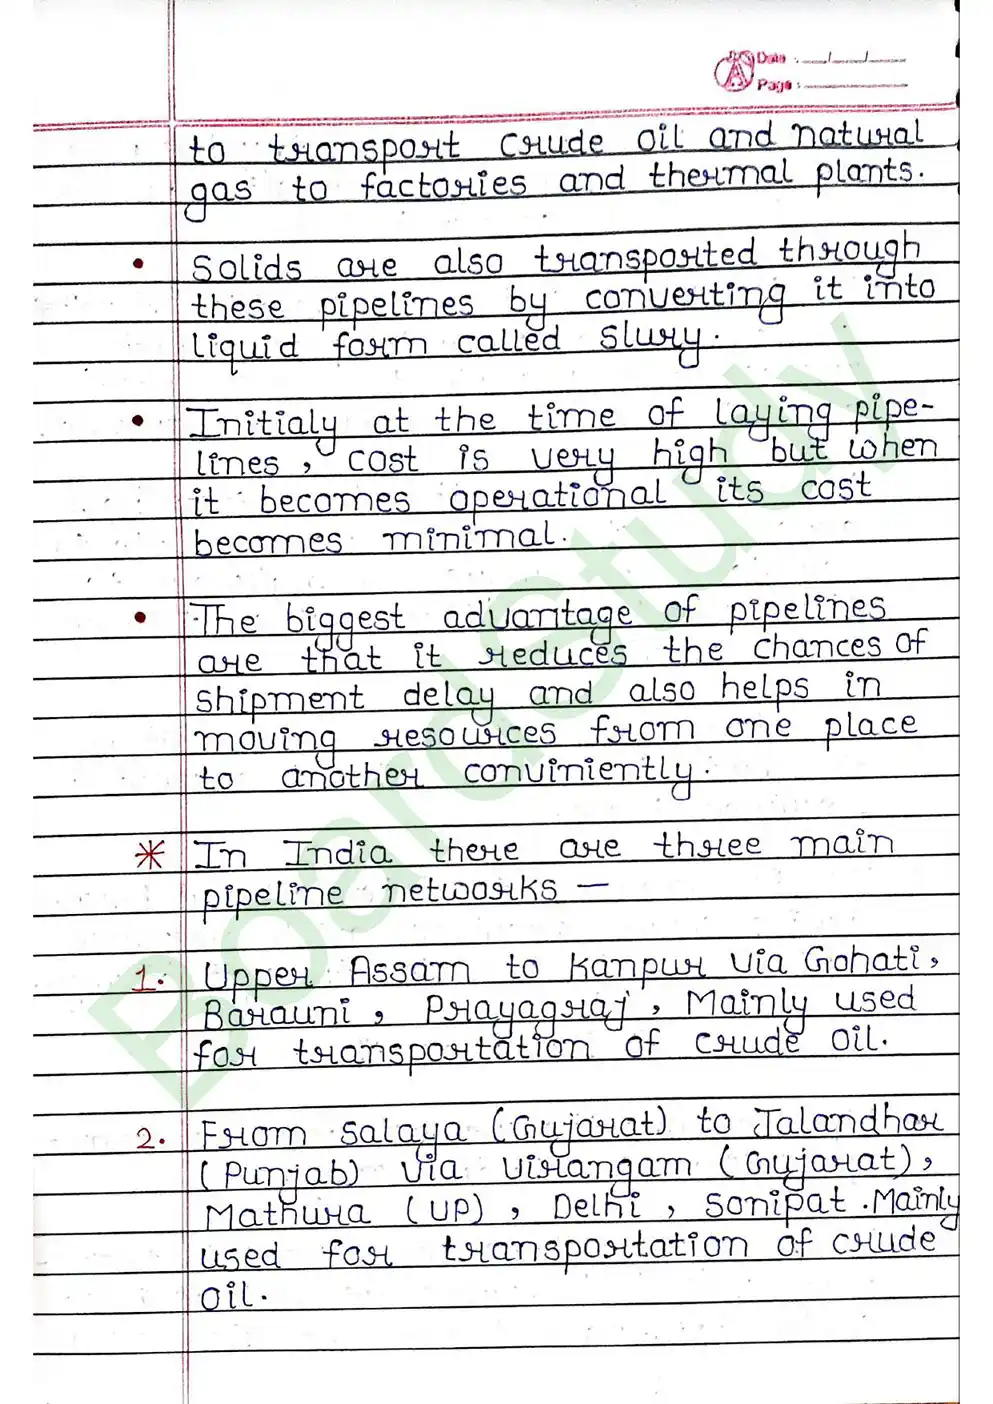 Date :
Page :
to transport crude oil and natural
gas to factories and thermal plants.
• Solids are also transported through
these pipelines by converting it into
liquid form called slury.
• Initialy at the time of laying pipe-
lines, cost is very high but when
it becomes operational its cost
becomes minimal.
• The biggest advantage of pipelines
are that it reduces the chances of
shipment delay and also helps in
moving resources from one place
to another conviniently.
* In India there are three main
pipeline networks —
1. Upper Assam to Kanpur via Gohati,
Barauni, Prayagraj, Mainly used
for transportation of crude oil.
2. From Salaya (Gujarat) to Jalandhar
(Punjab) via Virangam (Gujarat),
Mathura (UP), Delhi, Sonipat. Mainly
used for transportation of crude
oil.
BoardStudy